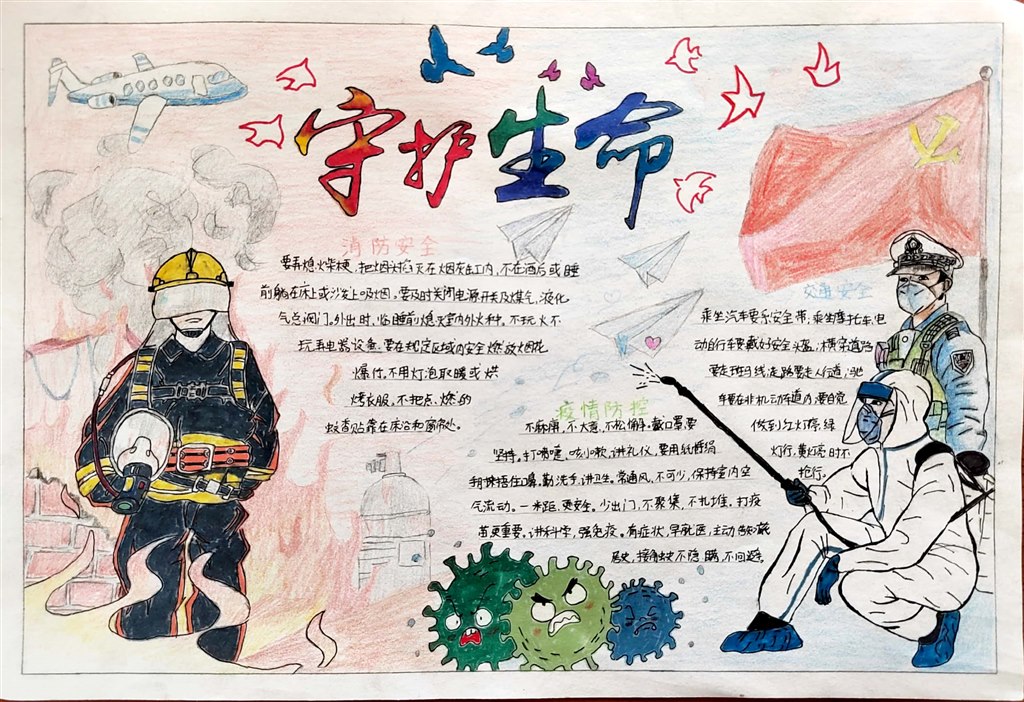 守护生命
消防安全
要弄熄火柴梗,把烟头掐灭在烟灰缸内,不在酒后或睡
前躺在床上或沙发上吸烟,要及时关闭电源开关及煤气,液化
气总阀门。外出时,临睡前熄灭室内外火种。不玩火不
玩弄电器设备,要在规定区域内安全燃放烟花
爆竹,不用灯泡取暖或烘
烤衣服,不把点燃的
蚊香贴靠在床沿和窗帘处。
交通安全
乘坐汽车要系安全带,乘坐摩托车,电
动自行车要戴好安全头盔;横穿道路
要走斑马线,走路要走人行道,驰
车要在非机动车道内,要自觉
做到红灯停绿
灯行,黄灯亮时不
抢行。
疫情防控
不麻痹,不大意,不松懈。戴口罩要
坚持。打喷嚏,咳小嗽,讲礼仪,要用纸巾绢
捂住嘴,勤洗手,讲卫生。常通风,不可少,保持室内空
气流动。一米距,更安全。少出门,不聚集,不扎堆,打疫
苗更重要。讲科学,强免疫。有症状,早就医,主动告知
史,接触史不隐瞒,不回避。